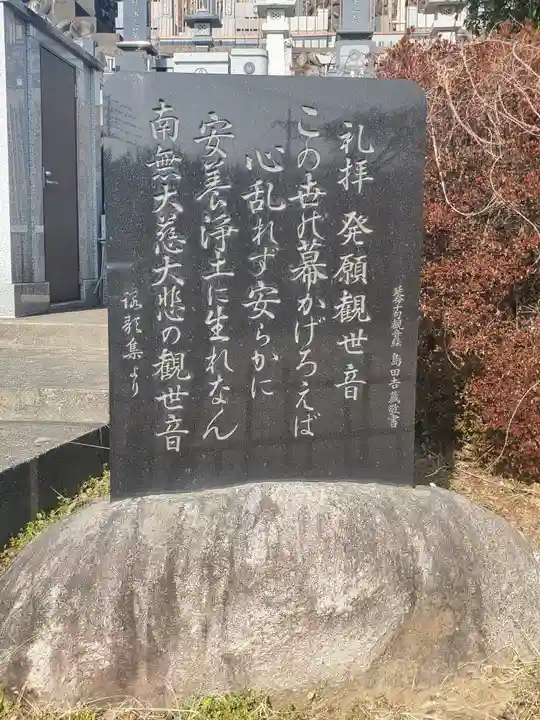 礼拝 発願観世音
この世の幕かげろえば
心乱れず安らかに
安養浄土に生れなん
南無大慈大悲の観世音
詠歌集より
島田吉蔵敬書